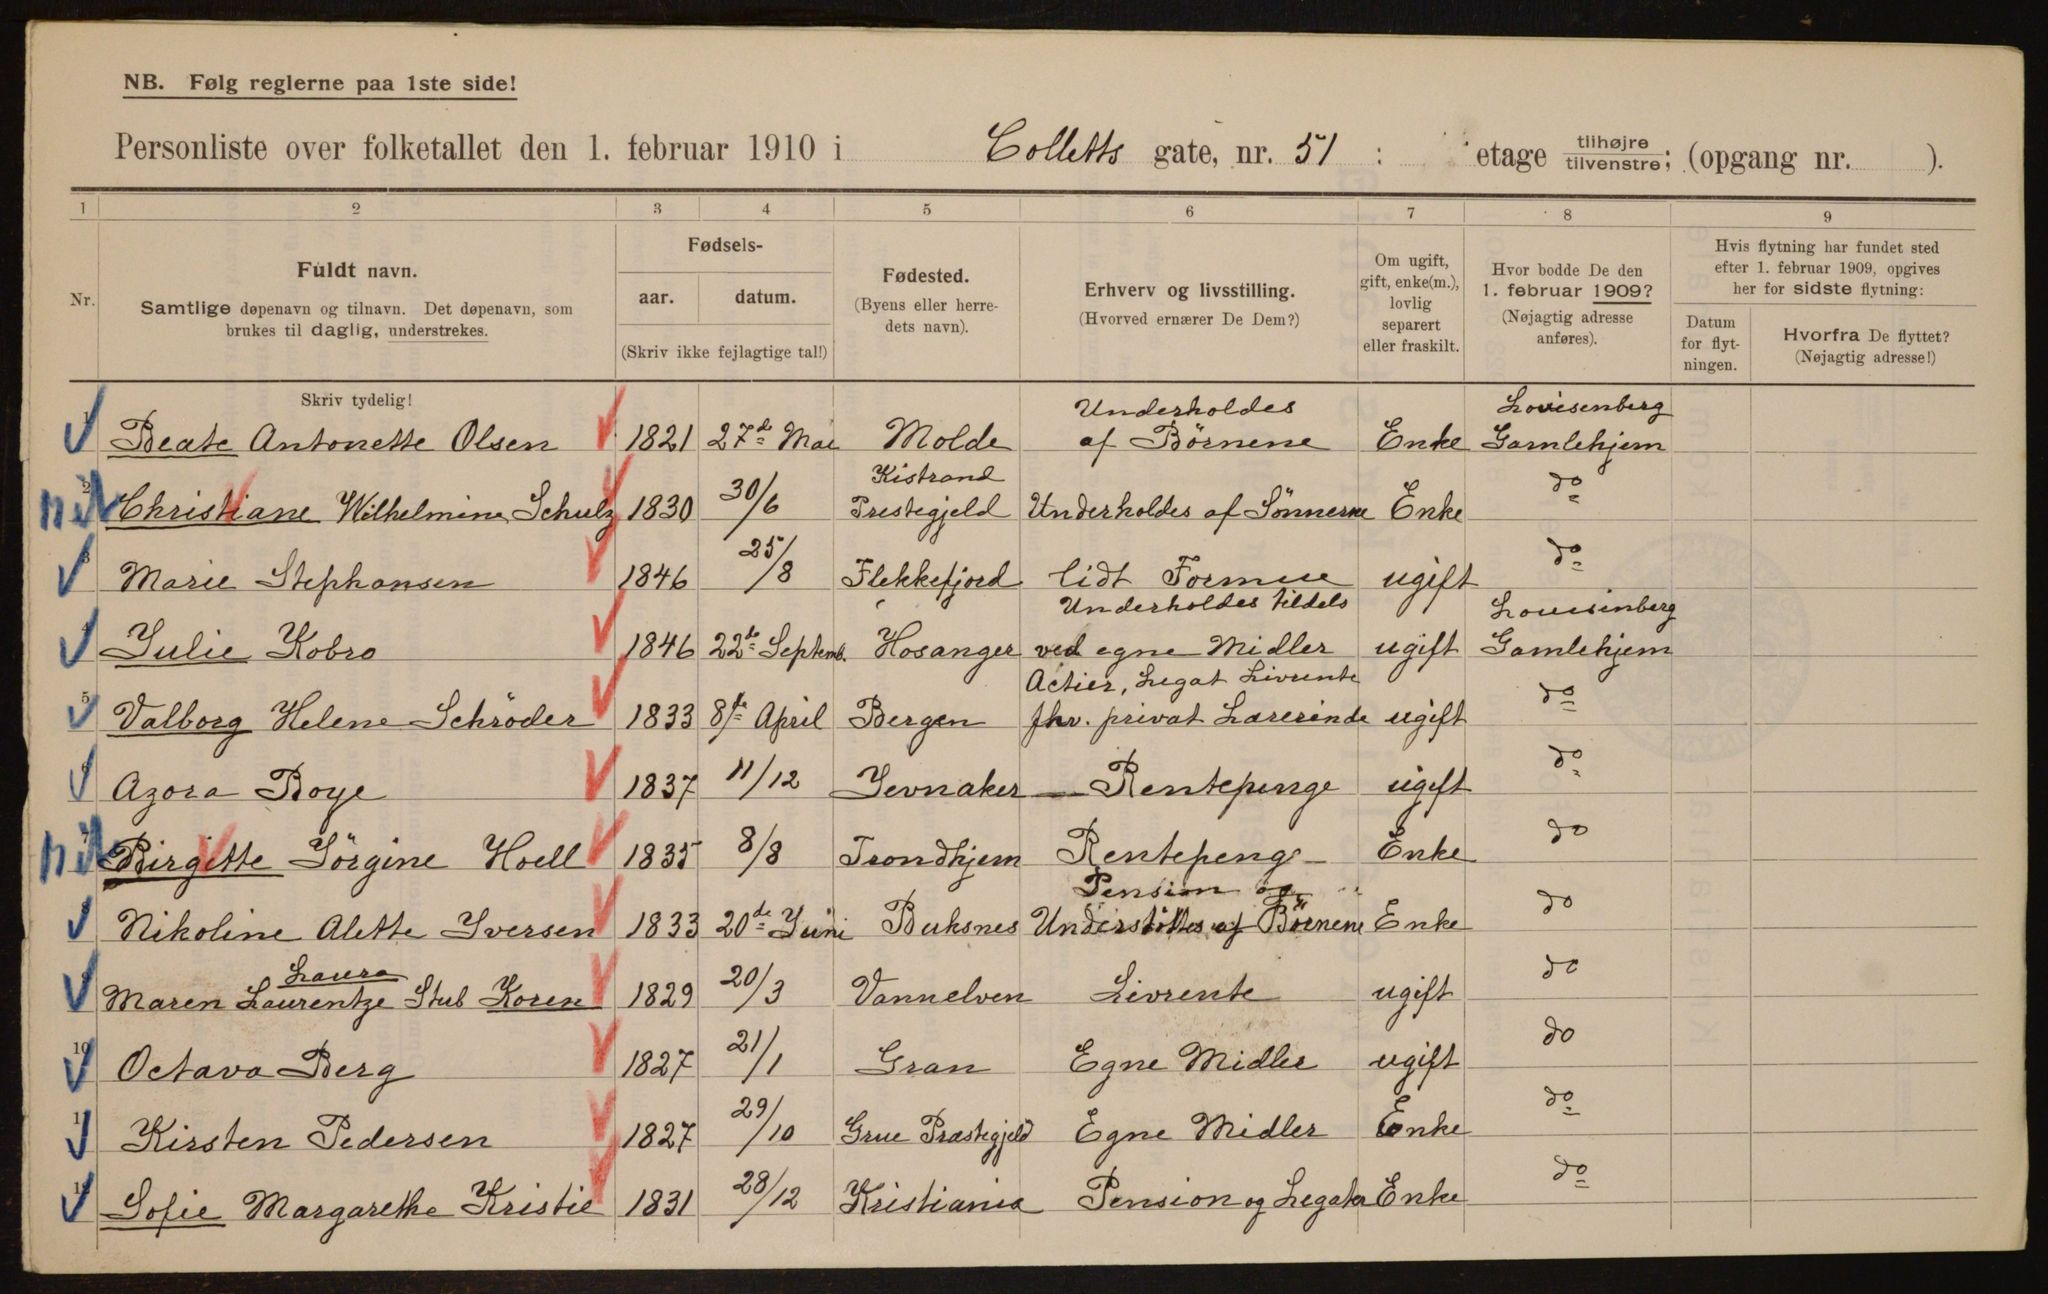 NB. Følg reglerne paa 1ste side!
Personliste over folketallet den 1. februar 1910 i Colletts gate, nr. 51 : etage tilhøjre/tilvenstre; (opgang nr. ).
1 2 3 4 5 6 7 8 9
Nr.
Fuldt navn.
Samtlige døpenavn og tilnavn. Det døpenavn, som
brukes til daglig, understrekes.
Fødsels-
aar. datum.
(Skriv ikke fejlagtige tal!)
Fødested.
(Byens eller herre-
dets navn).
Erhverv og livsstilling.
(Hvorved ernærer De Dem?)
Om ugift,
gift, enke(m.),
lovlig
separert
eller fraskilt.
Hvor bodde De den
1. februar 1909?
(Nøjagtig adresse
anføres).
Hvis flytning har fundet sted
efter 1. februar 1909, opgives
her for sidste flytning:
Datum
for flyt-
ningen.
Hvorfra De flyttet?
(Nøjagtig adresse!)
Skriv tydelig!
1 Beate Antonette Olsen 1821 27de Mai Molde Underholdes af Börnene Enke Lovisenberg Gamlehjem
2 Christiane Wilhelmine Schulz 1830 30/6 Kistrand Prestegjeld Underholdes af Sönnerne Enke do
3 Marie Stephansen 1846 25/8 Flekkefjord lidt Formue ugift do
4 Julie Kobro 1846 22de Septemb. Hosanger Underholdes tildels ved egne Midler ugift Louisinberg Gamlehjem
5 Valborg Helene Schröder 1833 8de April Bergen Actier, Legat Livrente fhv. privat Lærerinde ugift do
6 Azora Boye 1837 11/12 Jevnaker Rentepenge ugift do
7 Birgitte Jörgine Hoell 1835 8/8 Trondhjem Rentepenge Enke do
8 Nikoline Alette Iversen 1833 20de Juni Buksnes Pension og Understöttes af Börnene Enke do
9 Maren Laurentze Laura Stub Koren 1829 20/3 Vannelven Livrente ugift do
10 Octava Berg 1827 21/1 Gran Egne Midler ugift do
11 Kirsten Pedersen 1827 29/10 Grue Præstegjeld Egne Midler Enke do
12 Sofie Margarethe Kristie 1831 28/12 Kristiania Pension og Legater Enke do